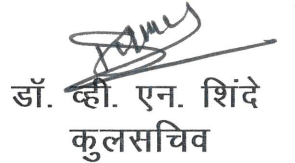 डॉ. व्ही. एन. शिंदे
कुलसचिव